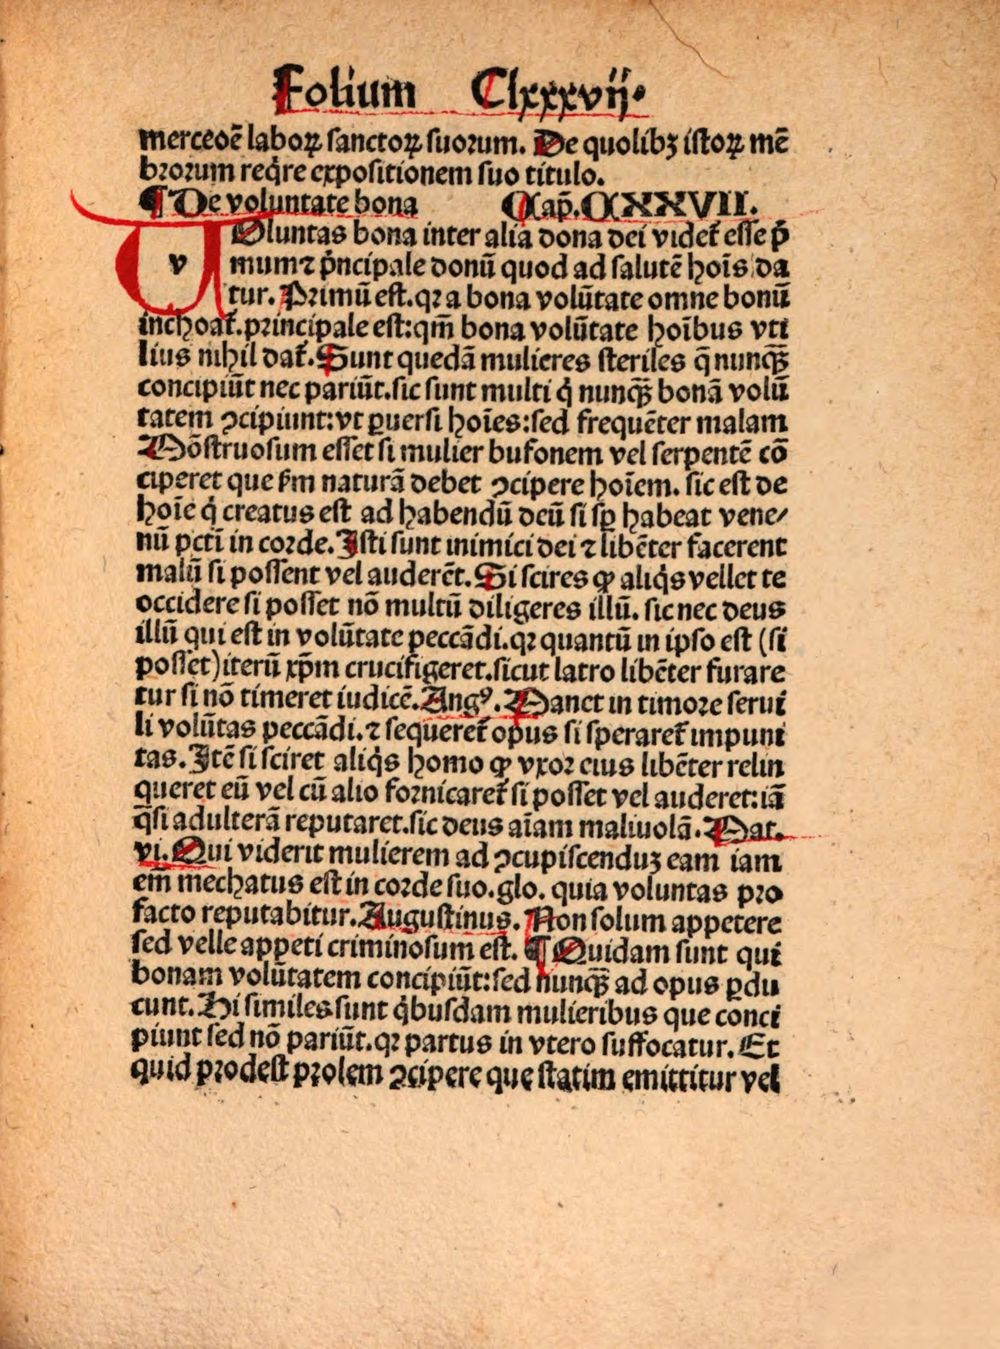 Folium Clxxxvij.
mercedē laboꝝ sanctoꝝ suorum. De quolibꝫ istoꝝ mē
brorum reqͥre expositionem suo titulo.
¶ De voluntate bona Cap̄. CXXVII.
VOluntas bona inter alia dona dei videt᷑ esse p̄
mum ⁊ pͥncipale donū quod ad salutē hoīs da
tur. Primū est. qꝛ a bona volūtate omne bonū
inchoat᷑. principale est: qm̄ bona volūtate hoībus vti
lius nihil dat᷑. Sunt quedā mulieres steriles q̄ nunqꝫ̄
concipiūt nec pariūt. sic sunt multi qͥ nunqꝫ̄ bonā volū
tatem ꝯcipiunt: vt ꝑuersi hoīes: sed frequēter malam
Mōstruosum esset si mulier bufonem vel serpentē cō
ciperet que ẜm naturā debet ꝯcipere hoīem. sic est de
hoīe qͥ creatus est ad habendū deū si sꝑ habeat vene/
nū pctī in corde. Isti sunt inimici dei ⁊ libēter facerent
malū si possent vel auderēt. Si scires ꝙ aliqͥs vellet te
occidere si posset nō multū diligeres illū. sic nec deus
illū qui est in volūtate peccādi. qꝛ quantū in ipso est (si
posset) iterū xp̄m crucifigeret. sicut latro libēter furare
tur si nō timeret iudicē. Augꝰ. Manet in timore serui
li volūtas peccādi. ⁊ sequeret᷑ opus si speraret᷑ impuni
tas. Itē si sciret aliqͥs homo ꝙ vxor eius libēter relin
queret eū vel cū alio fornicaret᷑ si posset vel auderet: iā
q̄si adulterā reputaret. sic deus aīam maliuolā. Mat.
vi. Qui viderit mulierem ad ꝯcupiscenduꝫ eam iam
em̄ mechatus est in corde suo. glo. quia voluntas pro
facto reputabitur. Augustinus. Non solum appetere
sed velle appeti criminosum est. ¶ Quidam sunt qui
bonam volūtatem concipiūt: sed nunqꝫ̄ ad opus ꝑdu
cunt. Hi similes sunt qͥbusdam mulieribus que conci
piunt sed nō pariūt. qꝛ partus in vtero suffocatur. Et
quid prodest prolem ꝯcipere que statim emittitur vel